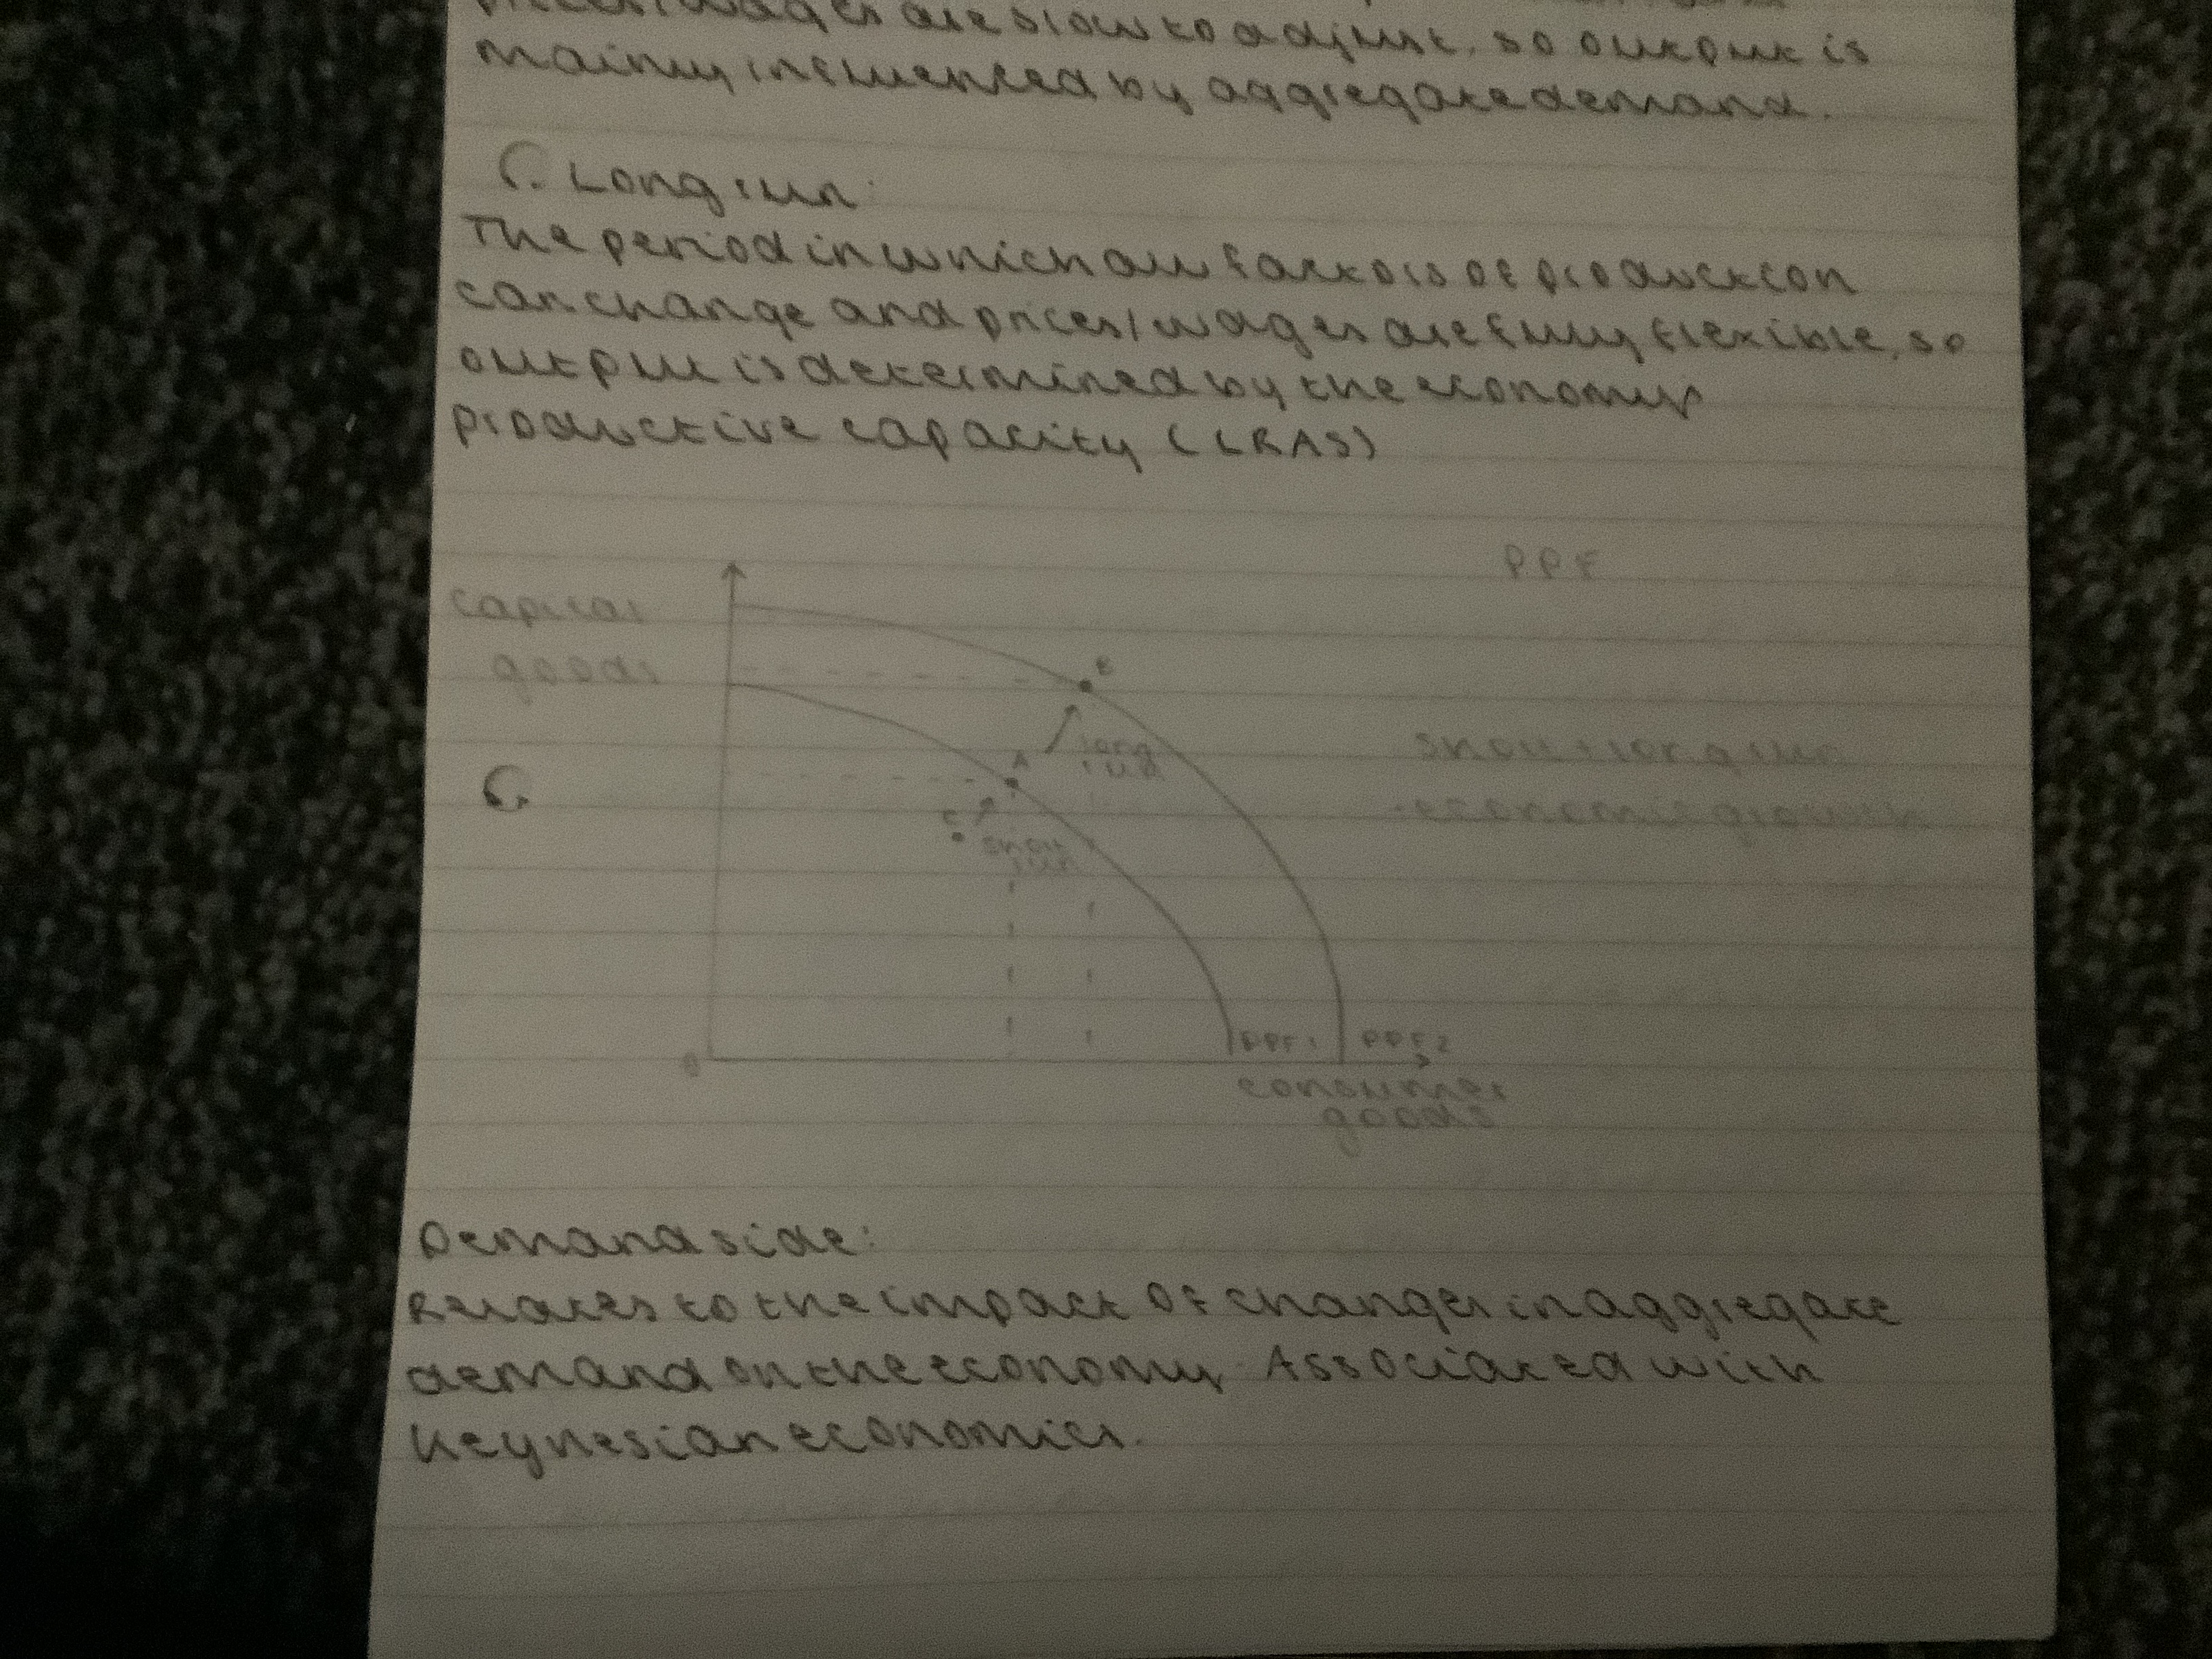 prices/wages are slow to adjust, so output is
mainly influenced by aggregate demand.
Long run:
The period in which all factors of production
can change and prices/wages are fully flexible, so
output is determined by the economy's
productive capacity (LRAS)
PPF
capital
goods
B
long
run
A
C
short
run
short + long run
economic growth
0
PPF1 PPF2
consumer
goods
Demand side:
Relates to the impact of changes in aggregate
demand on the economy. Associated with
Keynesian economics.